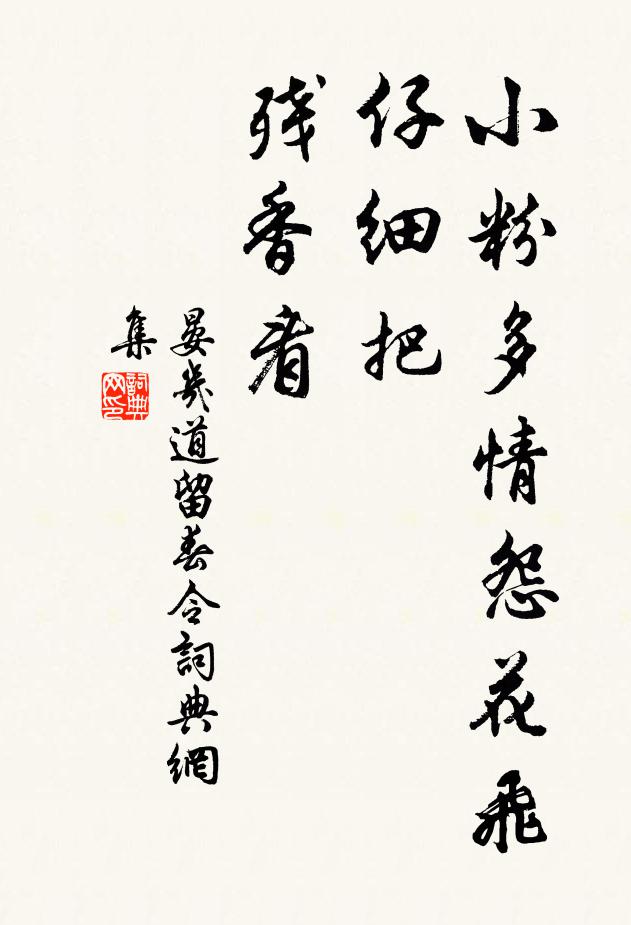 小粉多情怨花飛
仔細把
残香看
晏幾道留春令詞典網
集
詞典
网印